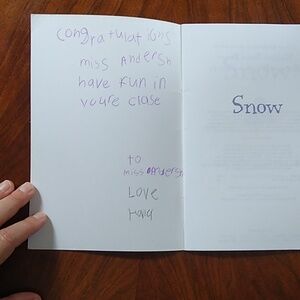 congratulations
miss Anderson
have fun in
youre clase
to
miss Anderson
Love
Snow